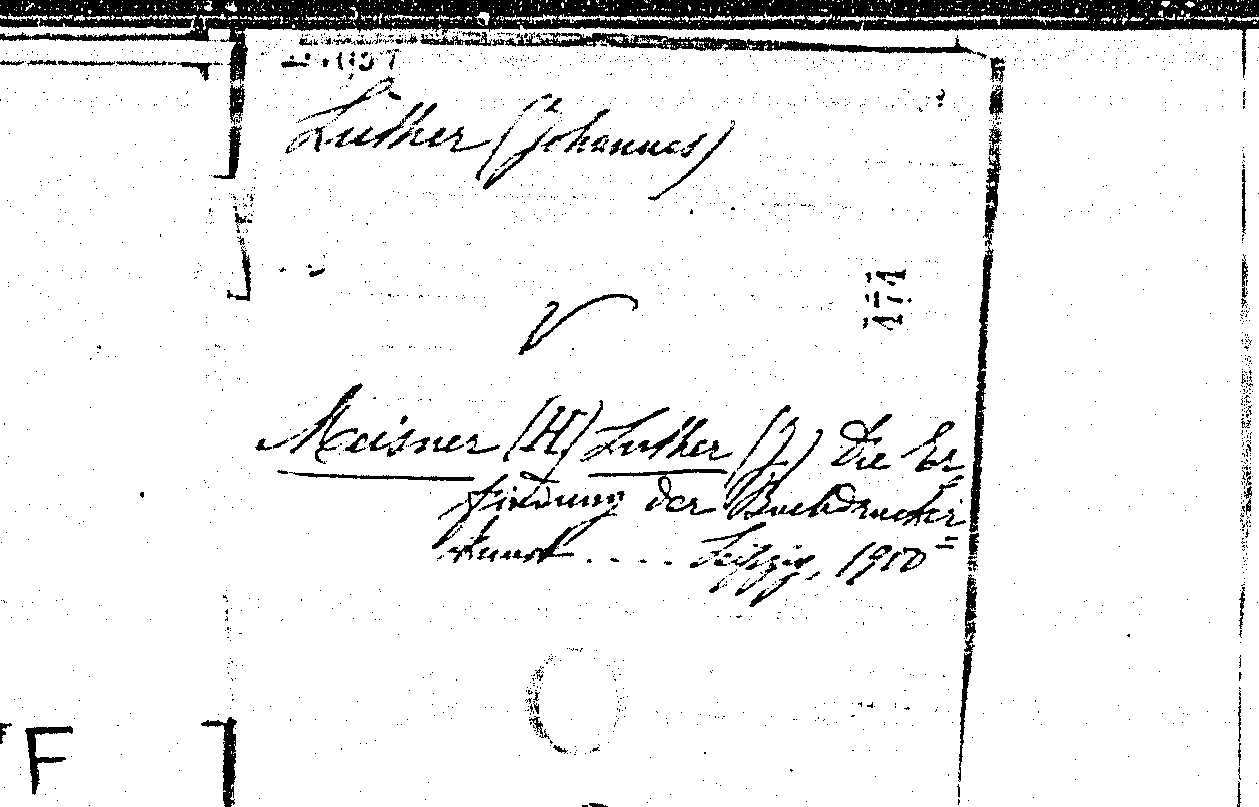 Luther (Johannes)
V
171
Meisner (H) Luther (J) Die Er-
findung der Buchdrucker
kunst .... Leipzig, 1900=
F